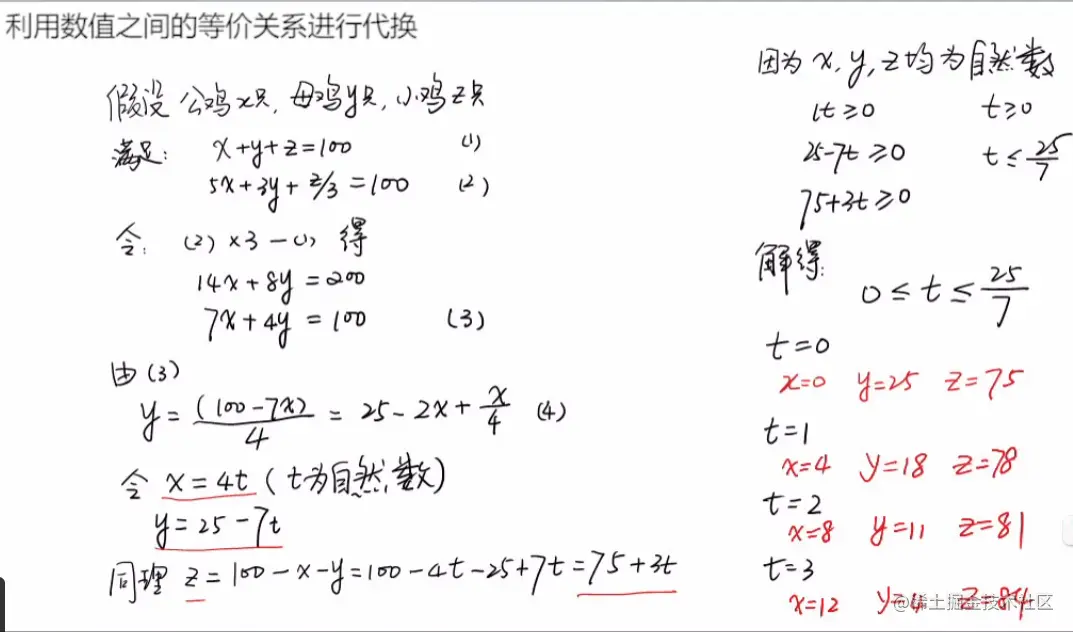 利用数值之间的等价关系进行代换
假设 公鸡x只, 母鸡y只, 小鸡z只
满足: x+y+z=100 (1)
5x+3y+z/3=100 (2)
令: (2)×3-(1) 得
14x+8y=200
7x+4y=100 (3)
由(3)
y=(100-7x)/4=25-2x+x/4 (4)
令 x=4t (t为自然数)
y=25-7t
同理 z=100-x-y=100-4t-25+7t=75+3t
因为 x, y, z均为自然数
t≥0 t≥0
25-7t≥0 t≤25/7
75+3t≥0
解得:
0≤t≤25/7
t=0
x=0 y=25 z=75
t=1
x=4 y=18 z=78
t=2
x=8 y=11 z=81
t=3
x=12 y=4 z=84
@稀土掘金技术社区